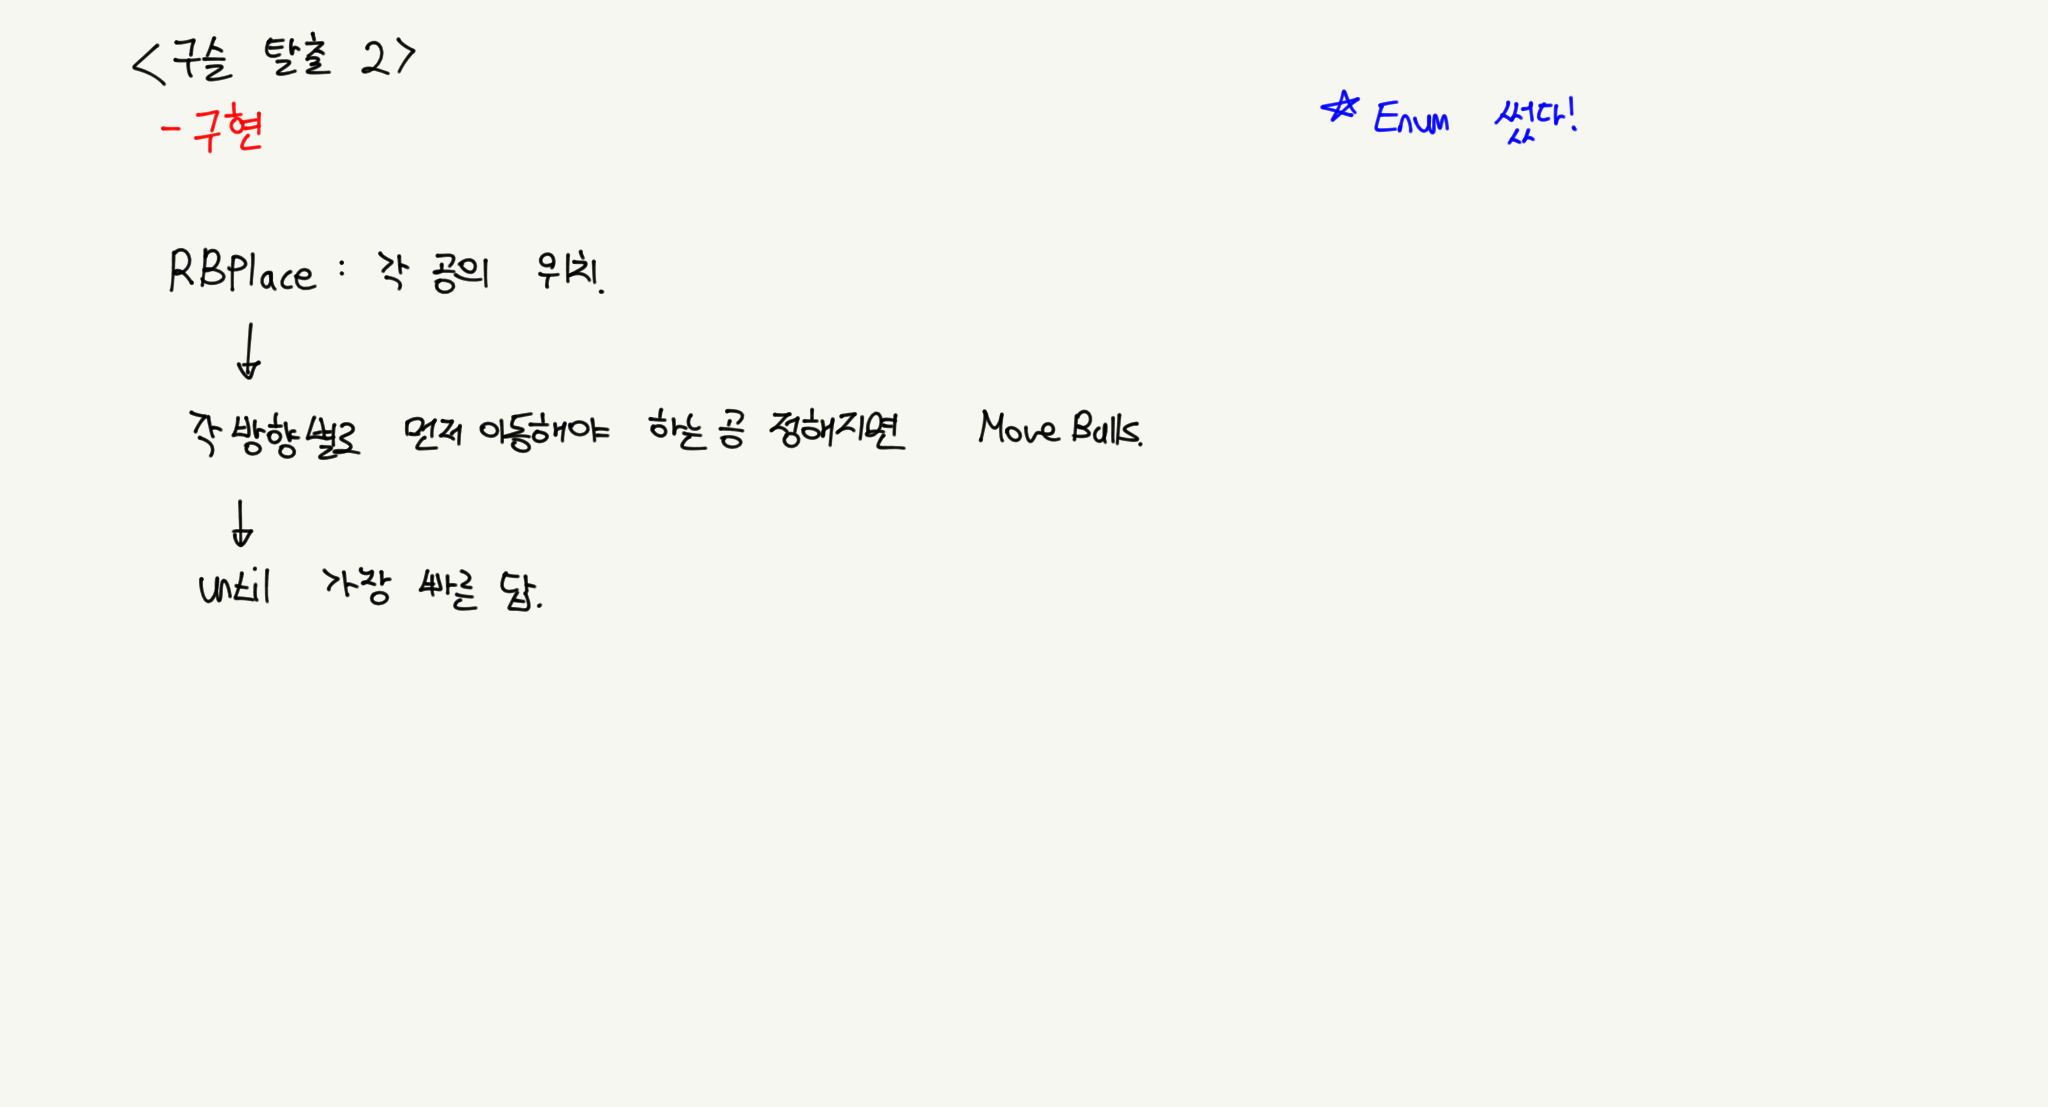 <구슬 탈출 2>
- 구현
☆ Enum 썼다!
RBPlace : 각 공의 위치.
↓
각 방향별로 먼저 이동해야 하는 공 정해지면 Move Balls.
↓
until 가장 빠른 답.